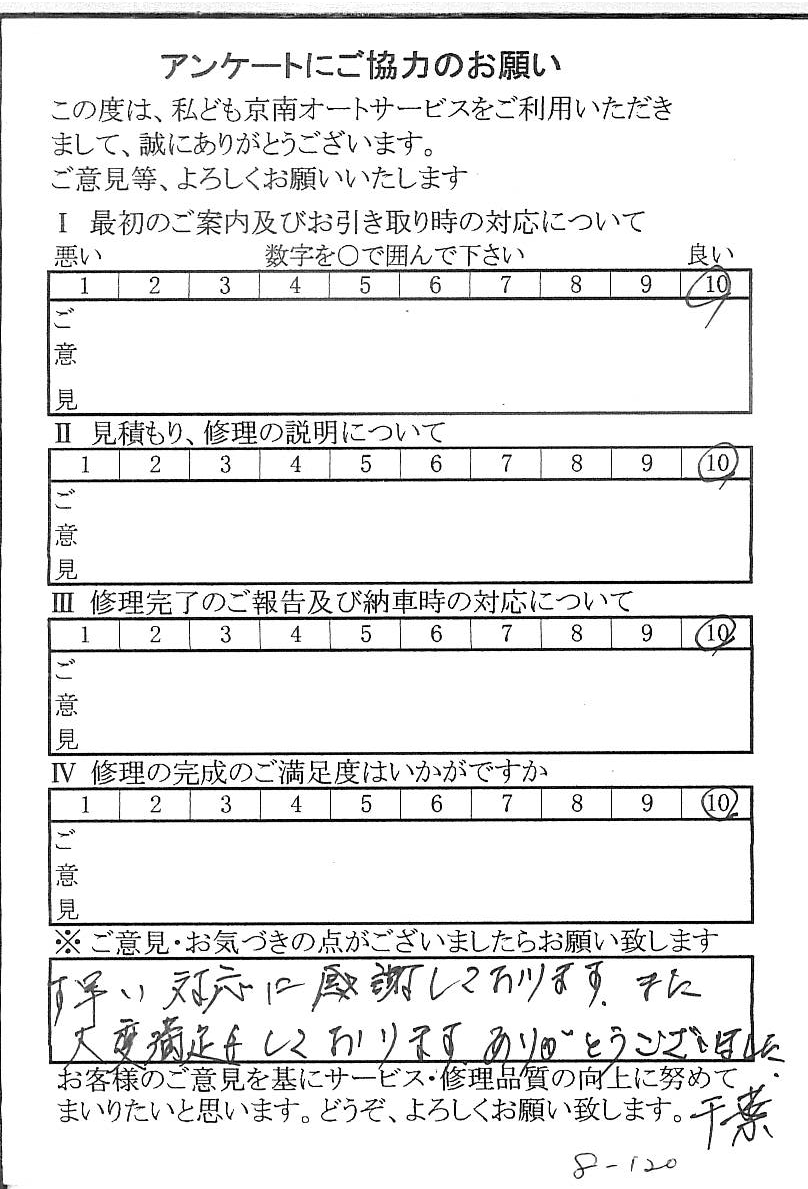 アンケートにご協力のお願い
この度は、私ども京南オートサービスをご利用いただき
まして、誠にありがとうございます。
ご意見等、よろしくお願いいたします
Ⅰ 最初のご案内及びお引き取り時の対応について
悪い 数字を〇で囲んで下さい 良い
1 2 3 4 5 6 7 8 9 10
ご
意
見
Ⅱ 見積もり、修理の説明について
1 2 3 4 5 6 7 8 9 10
ご
意
見
Ⅲ 修理完了のご報告及び納車時の対応について
1 2 3 4 5 6 7 8 9 10
ご
意
見
Ⅳ 修理の完成のご満足度はいかがですか
1 2 3 4 5 6 7 8 9 10
ご
意
見
※ ご意見・お気づきの点がございましたらお願い致します
す早い対応に感謝しております。また
大変満足をしております ありがとうございました。
お客様のご意見を基にサービス・修理品質の向上に努めて
まいりたいと思います。どうぞ、よろしくお願い致します。
千葉
8-120